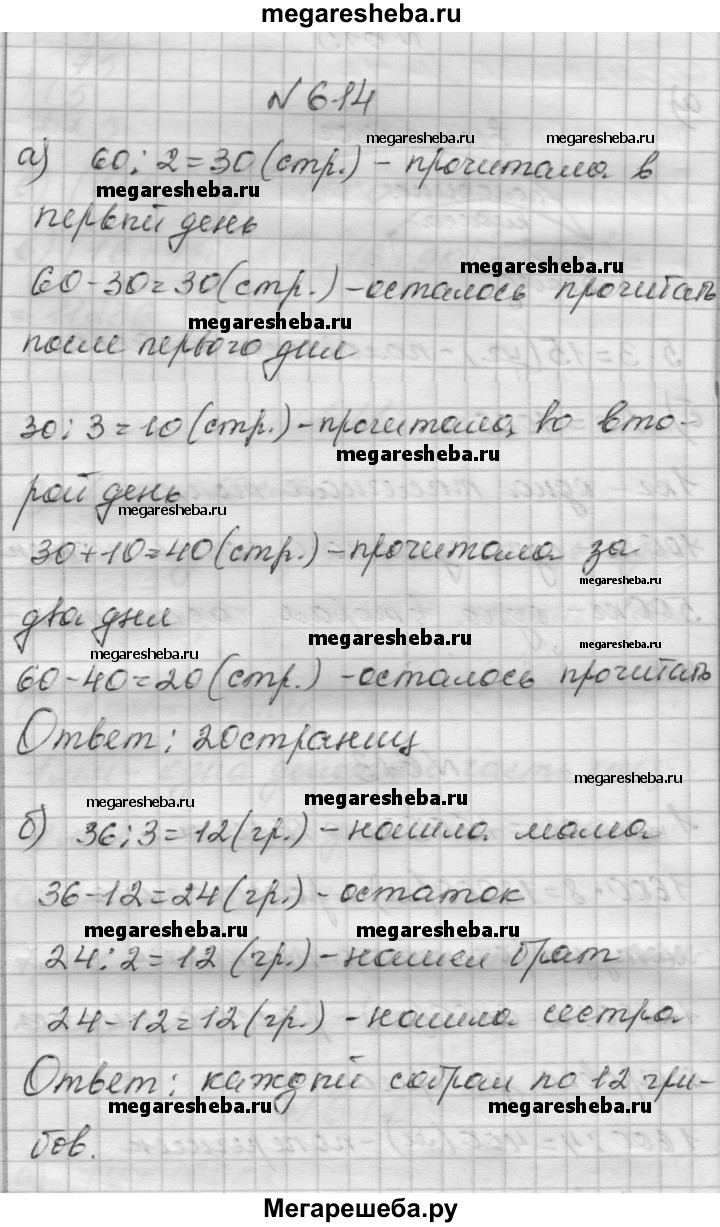 megaresheba.ru
№ 614
а) 60 : 2 = 30 (стр.) - прочитала в
megaresheba.ru megaresheba.ru
megaresheba.ru
первый день
60 - 30 = 30 (стр.) - осталось прочитать
megaresheba.ru
megaresheba.ru
после первого дня
30 : 3 = 10 (стр.) - прочитала во вто-
megaresheba.ru
рой день
megaresheba.ru
30 + 10 = 40 (стр.) - прочитала за
megaresheba.ru
два дня
megaresheba.ru
megaresheba.ru
megaresheba.ru
60 - 40 = 20 (стр.) - осталось прочитать
Ответ : 20 страниц
megaresheba.ru
megaresheba.ru
megaresheba.ru
б) 36 : 3 = 12 (гр.) - нашла мама
36 - 12 = 24 (гр.) - остаток
megaresheba.ru
megaresheba.ru
24 : 2 = 12 (гр.) - нашел брат
24 - 12 = 12 (гр.) - нашла сестра
Ответ : каждый собрал по 12 гри-
megaresheba.ru
megaresheba.ru
бов.
Мегарешеба.ру